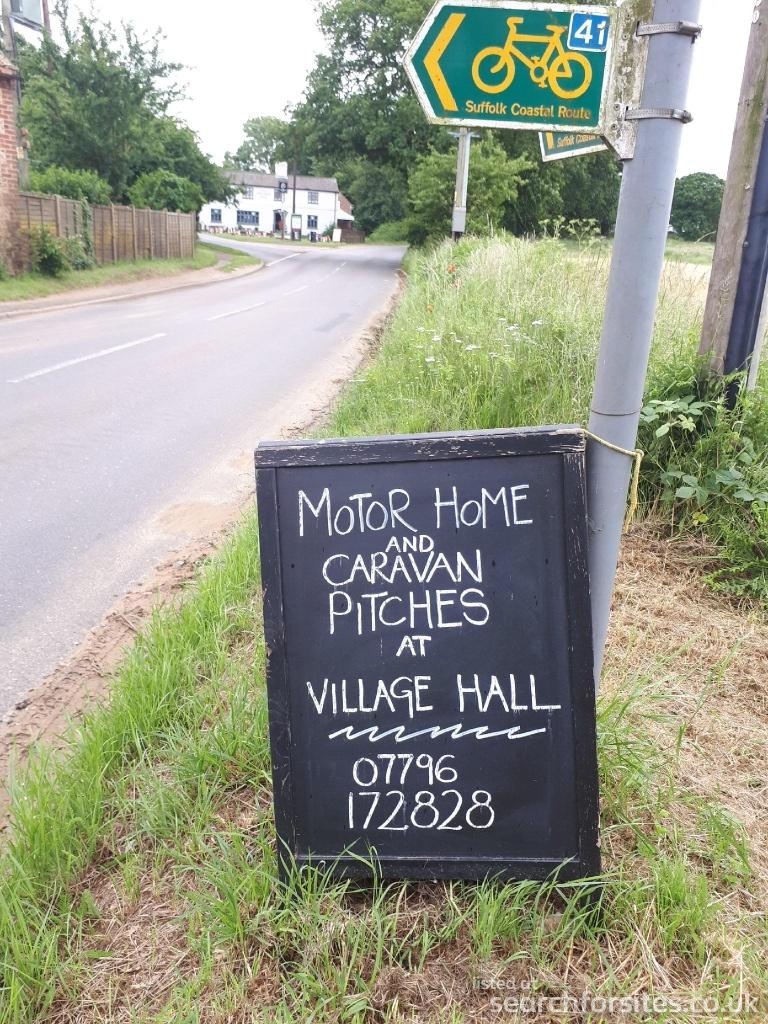 41
Suffolk Coastal Route
Suffolk Coastal
MOTOR HOME
AND
CARAVAN
PITCHES
AT
VILLAGE HALL
07796
172828
listed at
searchforsites.co.uk